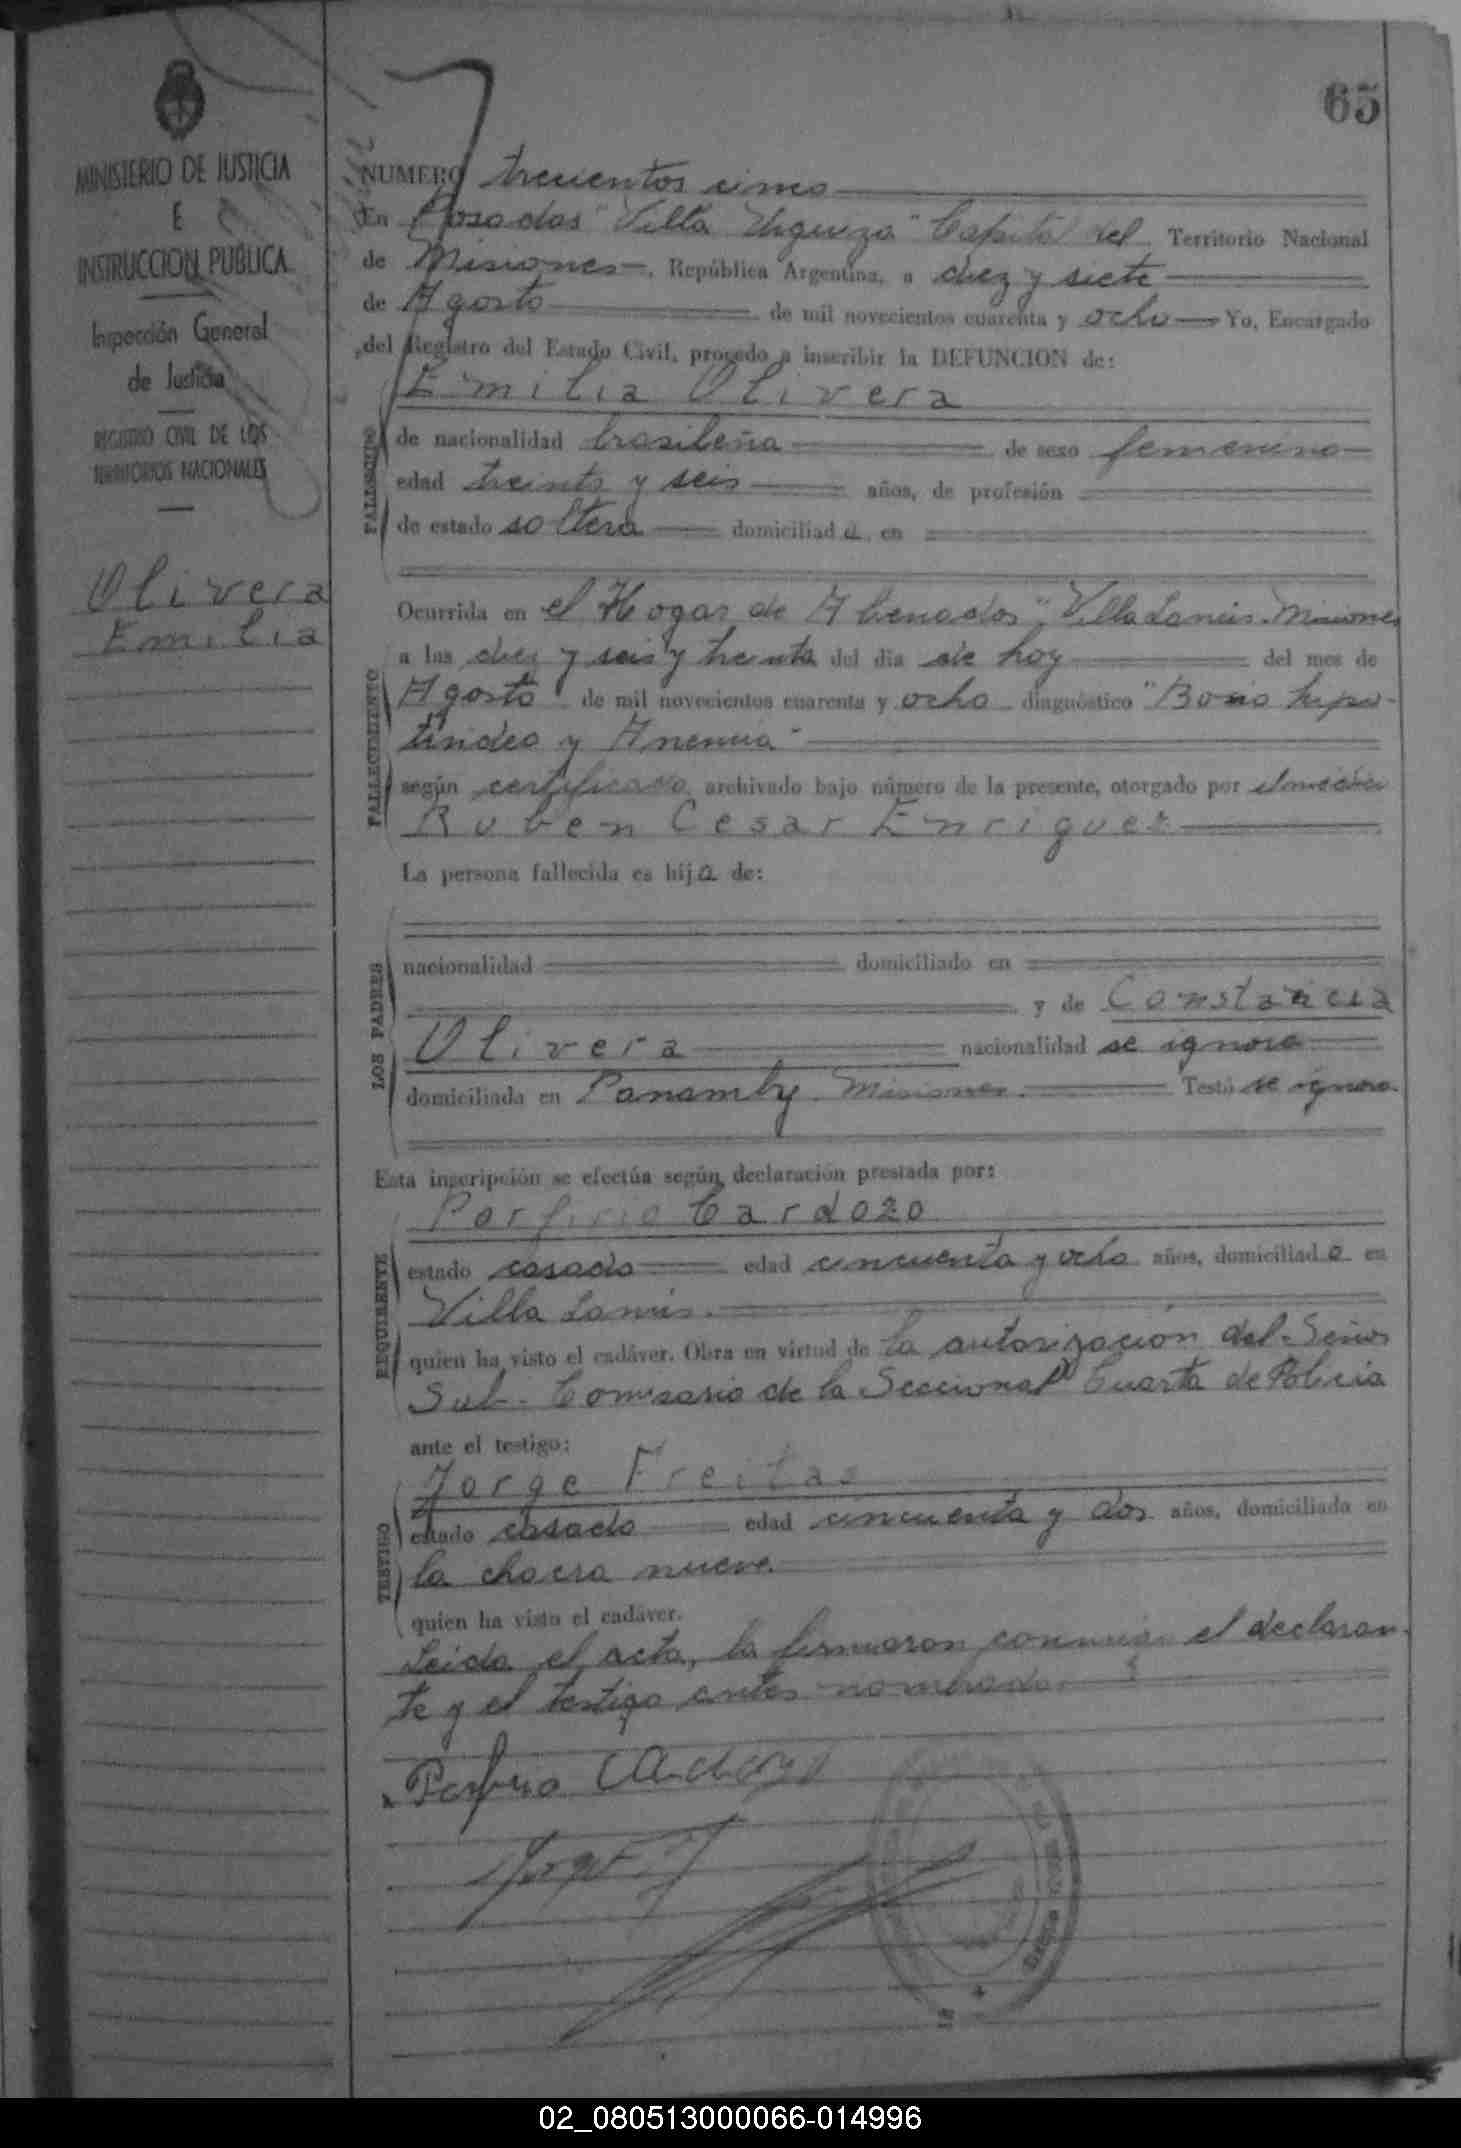 65
MINISTERIO DE JUSTICIA
E
INSTRUCCION PUBLICA
Inspección General
de Justicia
REGISTRO CIVIL DE LOS
TERRITORIOS NACIONALES
Olivera
Emilia
NUMERO trecientos cinco
En Posadas "Villa Urquiza" Capital del Territorio Nacional
de Misiones, República Argentina, a diez y siete
de Agosto de mil novecientos cuarenta y ocho Yo, Encargado
del Registro del Estado Civil, procedo a inscribir la DEFUNCION de:
Emilia Olivera
FALLECIDO
de nacionalidad brasileña de sexo femenino
edad treinta y seis años, de profesión
de estado soltera domiciliada, en
FALLECIMIENTO
Ocurrida en el Hogar de Alienados "Villa Lanús. Misiones
a las diez y seis y treinta del dia de hoy del mes de
Agosto de mil novecientos cuarenta y ocho diagnóstico "Bocio hipo-
tirideo y Anemia"
según certificado archivado bajo número de la presente, otorgado por el médico
Ruben Cesar Enriquez
La persona fallecida es hija de:
LOS PADRES
nacionalidad domiciliado en
y de Constancia
Olivera nacionalidad se ignora
domiciliada en Panamby Misiones. Testó se ignora.
Esta inscripción se efectúa según declaración prestada por:
REQUIRENTE
Porfirio Cardozo
estado casado edad cincuenta y ocho años, domiciliado en
Villa Lanús.
quien ha visto el cadáver. Obra en virtud de la autorización del Señor
Sub-Comisario de la Seccional Cuarta de Policia
ante el testigo:
TESTIGO
Jorge Freitas
estado casado edad cincuenta y dos años, domiciliado en
la chacra nueve.
quien ha visto el cadáver.
Leida el acta, la firmaron conmigo el declaran-
te y el testigo antes nombrado
Porfirio Cardozo
02_080513000066-014996